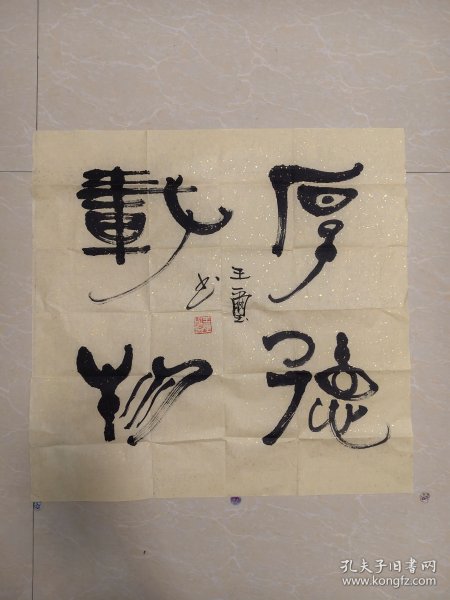 厚德
載物
王璽
书
孔夫子旧书网
www.kongfz.com